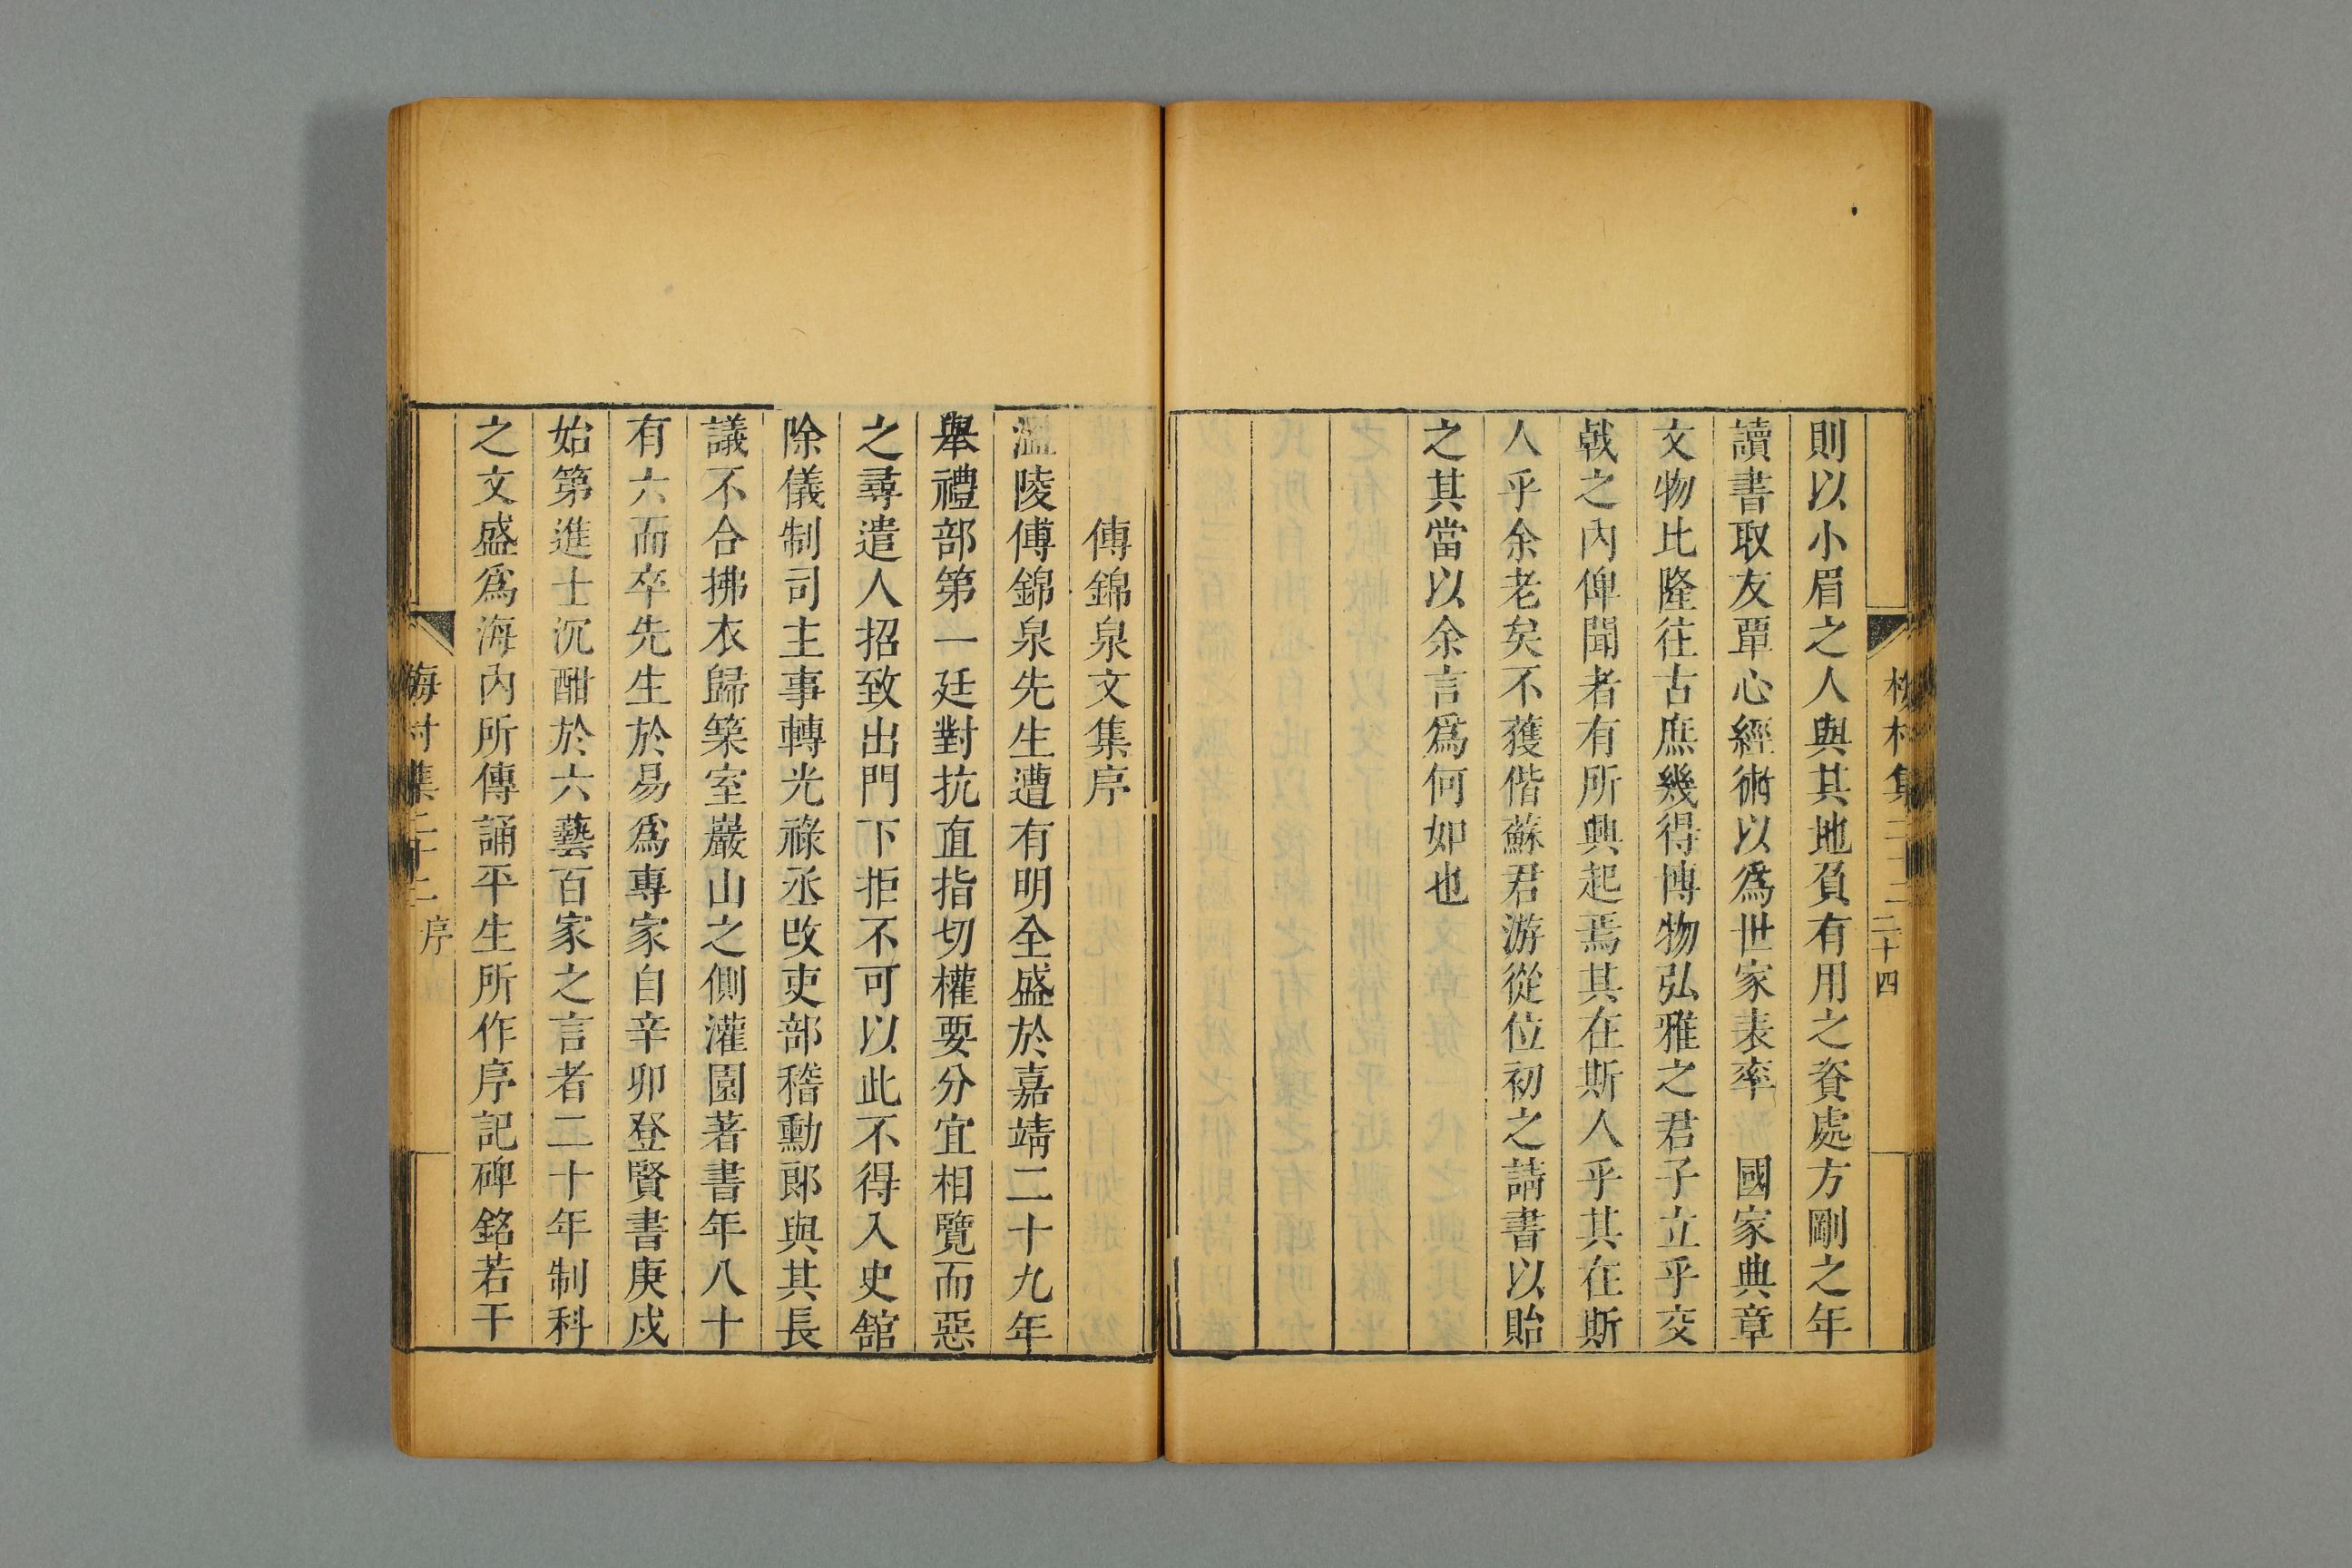 梅村集
二十四
則以小眉之人與其地負有用之資處方剛之年
讀書取友覃心經術以爲世家表率 國家典章
文物比隆往古庶幾得博物弘雅之君子立乎交
戟之內俾聞者有所興起焉其在斯人乎其在斯
人乎余老矣不獲偕蘇君游從位初之請書以貽
之其當以余言爲何如也
傅錦泉文集序
溫陵傅錦泉先生遭有明全盛於嘉靖二十九年
舉禮部第一廷對抗直指切權要分宜相覽而惡
之尋遣人招致出門下拒不可以此不得入史館
除儀制司主事轉光祿丞改吏部稽勳郎與其長
議不合拂衣歸築室巖山之側灌園著書年八十
有六而卒先生於易爲專家自辛卯登賢書庚戌
始第進士沉酣於六藝百家之言者二十年制科
之文盛爲海內所傳誦平生所作序記碑銘若干
梅村集
序